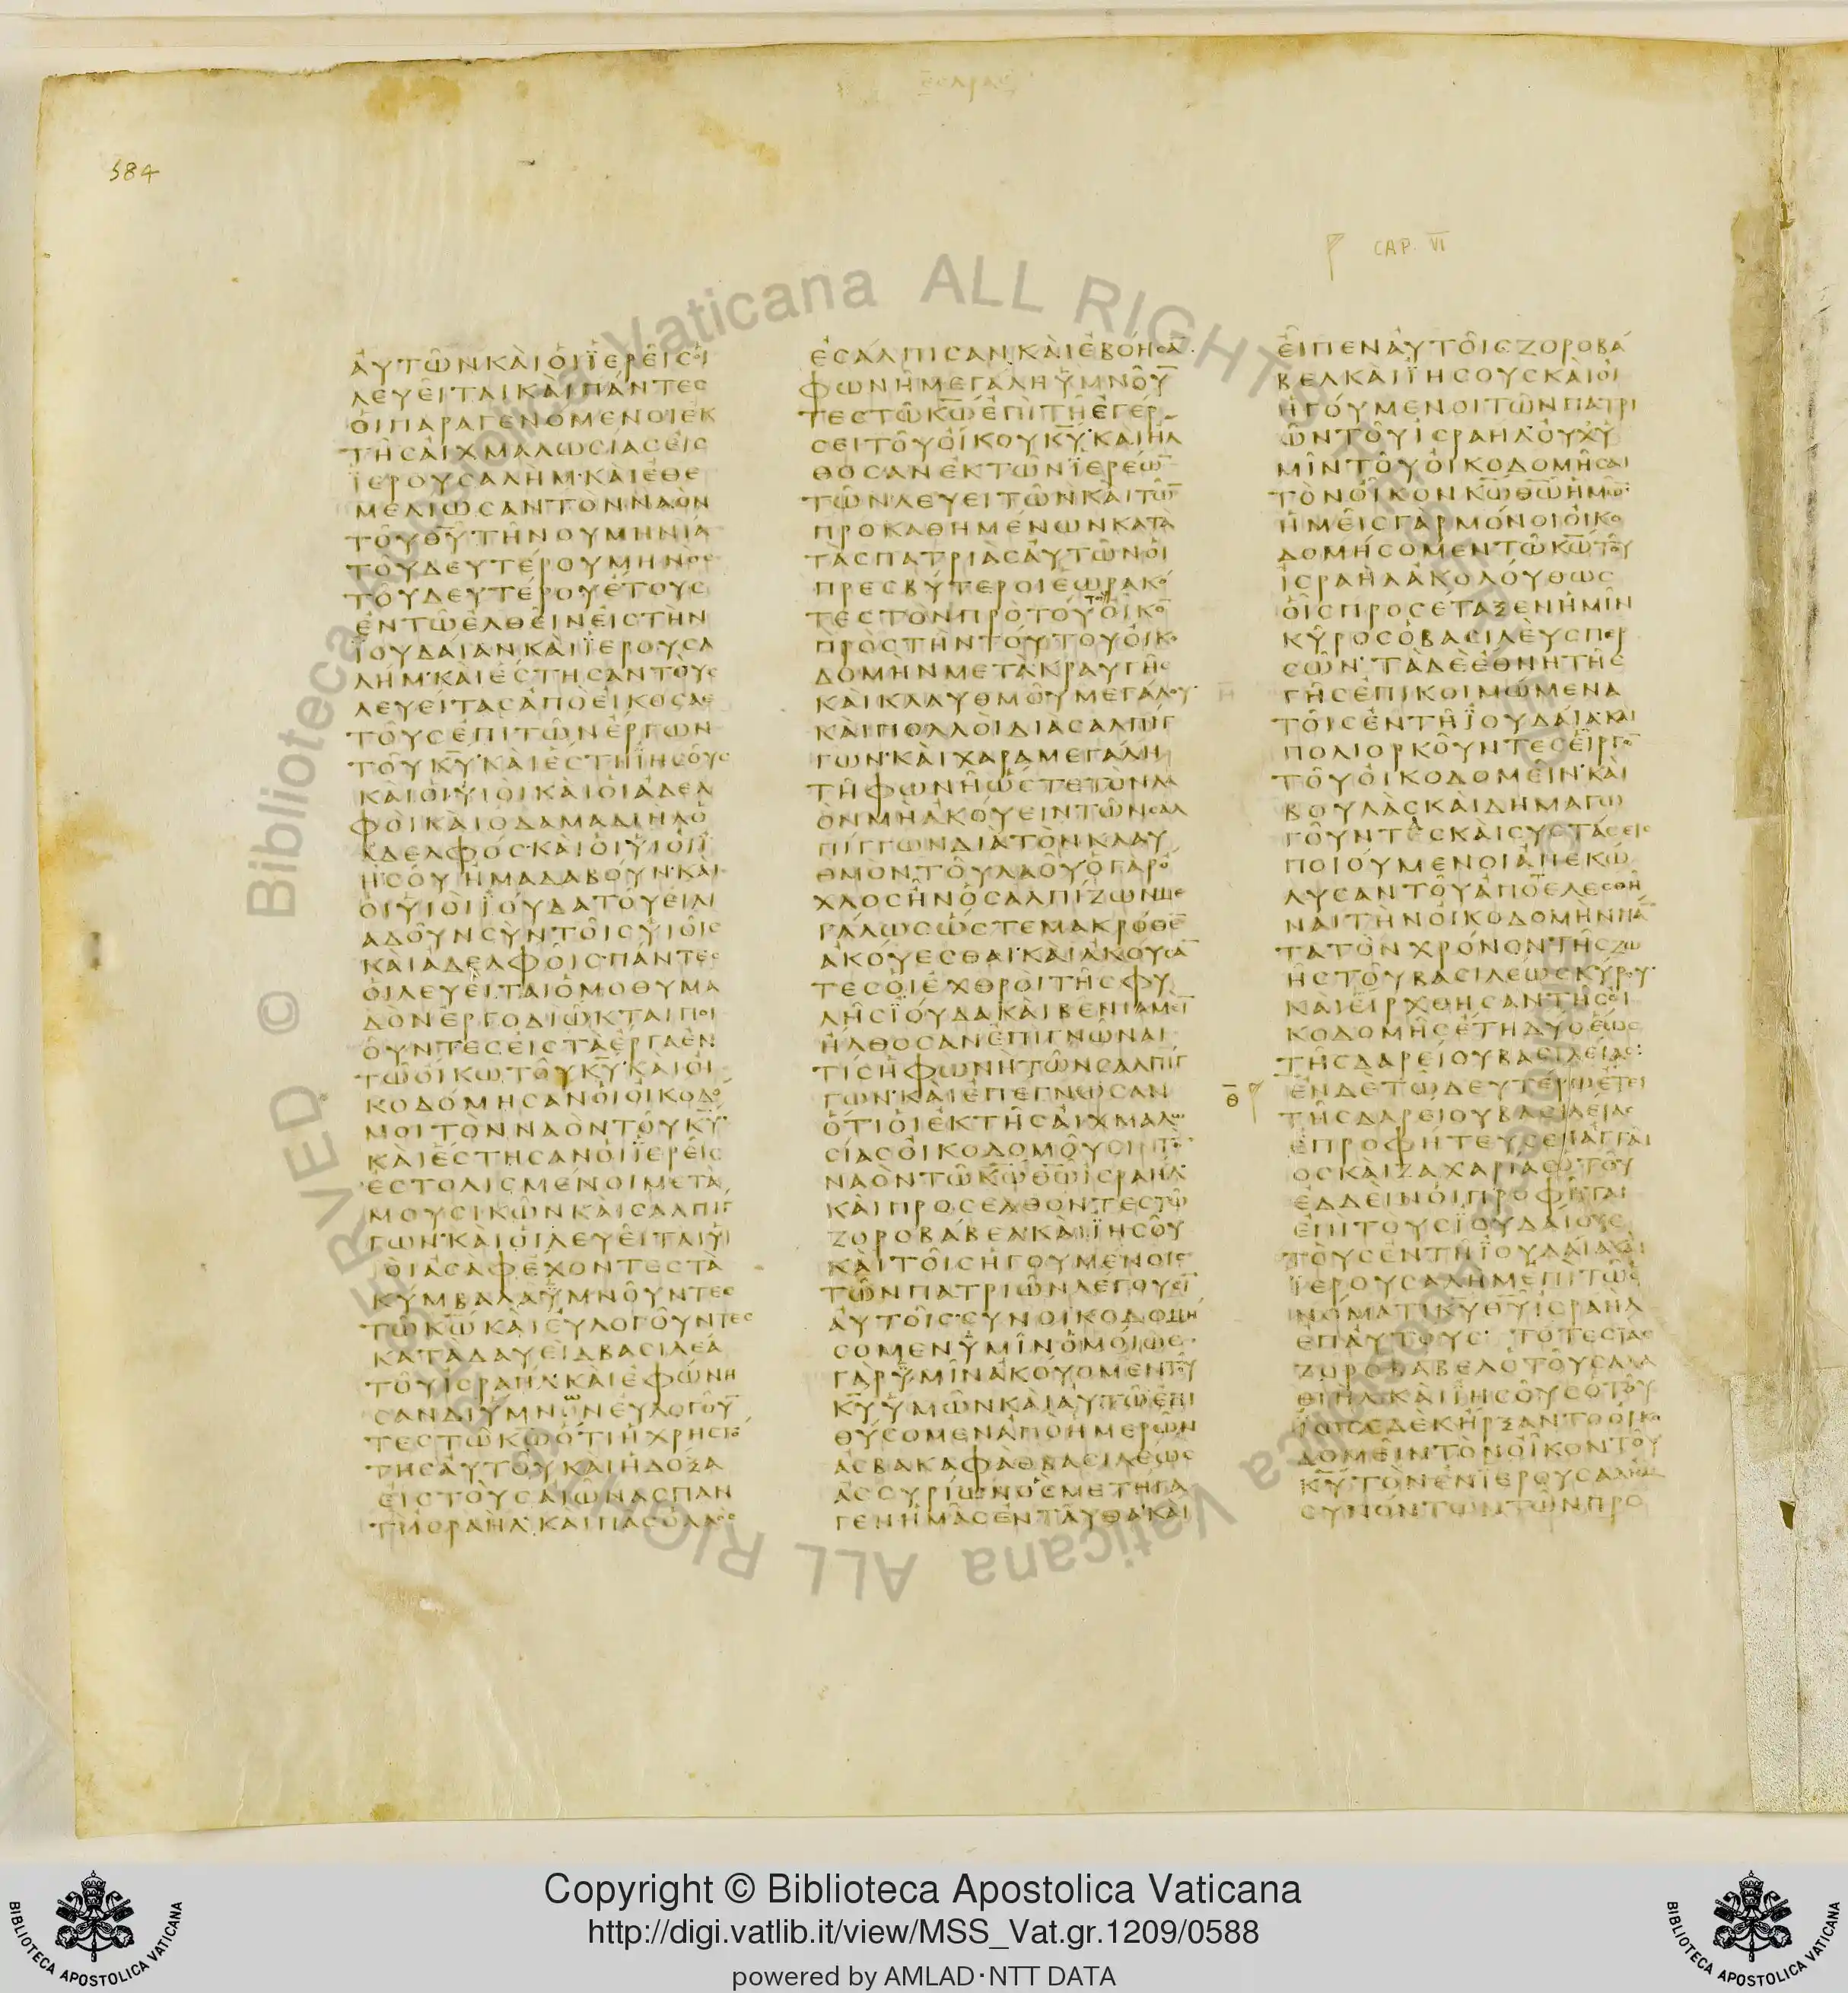 ΕΣΔΡΑΣ
584
CAP. VI
ΑΥΤΩΝΚΑΙΟΙΪΕΡΕΙϹΟΙ
ΛΕΥΕΙΤΑΙΚΑΙΠΑΝΤΕϹ
ΟΙΠΑΡΑΓΕΝΟΜΕΝΟΙΕΚ
ΤΗϹΑΙΧΜΑΛΩϹΙΑϹΕΙϹ
ΪΕΡΟΥϹΑΛΗΜ·ΚΑΙΕΘΕ
ΜΕΛΙΩϹΑΝΤΟΝΝΑΟΝ
ΤΟΥΘ̅Υ̅ΤΗΝΟΥΜΗΝΙΑ
ΤΟΥΔΕΥΤΕΡΟΥΜΗΝΟϹ
ΤΟΥΔΕΥΤΕΡΟΥΕΤΟΥϹ
ΕΝΤΩΕΛΘΕΙΝΕΙϹΤΗΝ
ΪΟΥΔΑΙΑΝΚΑΙΪΕΡΟΥϹΑ
ΛΗΜ·ΚΑΙΕϹΤΗϹΑΝΤΟΥϹ
ΛΕΥΕΙΤΑϹΑΠΟΕΙΚΟϹΑΕ
ΤΟΥϹΕΠΙΤΩΝΕΡΓΩΝ
ΤΟΥΚ̅Υ̅·ΚΑΙΕϹΤΗΪΗϹΟΥϹ
ΚΑΙΟΙΥΙΟΙΚΑΙΟΙΑΔΕΛ
ΦΟΙΚΑΙΟΔΑΜΑΔΙΗΛΟ
ΑΔΕΛΦΟϹ·ΚΑΙΟΙΥΙΟΙΪ
ΗϹΟΥΗΜΑΔΑΒΟΥΝ·ΚΑΙ
ΟΙΥΙΟΙΪΟΥΔΑΤΟΥΕΙΛΙ
ΑΔΟΥΝϹΥΝΤΟΙϹΥΙΟΙϹ
ΚΑΙΑΔΕΛΦΟΙϹ·ΠΑΝΤΕϹ
ΟΙΛΕΥΕΙΤΑΙΟΜΟΘΥΜΑ
ΔΟΝΕΡΓΟΔΙΩΚΤΑΙΠΟΙ
ΟΥΝΤΕϹΕΙϹΤΑΕΡΓΑΕΝ
ΤΩΟΙΚΩΤΟΥΚ̅Υ̅·ΚΑΙΟΙ
ΚΟΔΟΜΗϹΑΝΟΙΟΙΚΟΔΟ
ΜΟΙΤΟΝΝΑΟΝΤΟΥΚ̅Υ̅·
ΚΑΙΕϹΤΗϹΑΝΟΙΪΕΡΕΙϹ
ΕϹΤΟΛΙϹΜΕΝΟΙΜΕΤΑ
ΜΟΥϹΙΚΩΝΚΑΙϹΑΛΠΙΓ
ΓΩΝ·ΚΑΙΟΙΛΕΥΕΙΤΑΙΥΙ
ΟΙΑϹΑΦΕΧΟΝΤΕϹΤΑ
ΚΥΜΒΑΛΑΫΜΝΟΥΝΤΕϹ
ΤΩΚ̅Ω̅ΚΑΙΕΥΛΟΓΟΥΝΤΕϹ
ΚΑΤΑΔΑΥΕΙΔΒΑϹΙΛΕΑ
ΤΟΥΙϹΡΑΗΛ·ΚΑΙΕΦΩΝΗ
ϹΑΝΔΙΥΜΝΩΝΕΥΛΟΓΟΥ̅
ΤΕϹΤΩΚ̅Ω̅ΟΤΙΗΧΡΗϹΤΟ
ΤΗϹΑΥΤΟΥΚΑΙΗΔΟΞΑ
ΕΙϹΤΟΥϹΑΙΩΝΑϹΠΑΝ
ΤΙΙϹΡΑΗΛ·ΚΑΙΠΑϹΟΛΑΟϹ
ΕϹΑΛΠΙϹΑΝΚΑΙΕΒΟΗϹΑ̅
ΦΩΝΗΜΕΓΑΛΗΫΜΝΟΥ̅
ΤΕϹΤΩΚ̅Ω̅ΕΠΙΤΗΕΓΕΡ
ϹΕΙΤΟΥΟΙΚΟΥΚ̅Υ̅·ΚΑΙΗΛ
ΘΟϹΑΝΕΚΤΩΝΪΕΡΕΩ̅
ΤΩΝΛΕΥΕΙΤΩΝΚΑΙΤΩ̅
ΠΡΟΚΑΘΗΜΕΝΩΝΚΑΤΑ
ΤΑϹΠΑΤΡΙΑϹΑΥΤΩΝΟΙ
ΠΡΕϹΒΥΤΕΡΟΙΕΩΡΑΚΟ
ΤΕϹΤΟΝΠΡΟΤΟΥΤΟΥΟΙΚΟ̅
ΠΡΟϹΤΗΝΤΟΥΤΟΥΟΙΚΟ
ΔΟΜΗΝΜΕΤΑΚΡΑΥΓΗϹ
ΚΑΙΚΛΑΥΘΜΟΥΜΕΓΑΛΟΥ·
ΚΑΙΠΟΛΛΟΙΔΙΑϹΑΛΠΙΓ
ΓΩΝ·ΚΑΙΧΑΡΑΜΕΓΑΛΗ
ΤΗΦΩΝΗΩϹΤΕΤΟΝΛΑ
ΟΝΜΗΑΚΟΥΕΙΝΤΩΝϹΑΛ
ΠΙΓΓΩΝΔΙΑΤΟΝΚΛΑΥ
ΘΜΟΝΤΟΥΛΑΟΥΟΓΑΡΟ
ΧΛΟϹΗΝΟϹΑΛΠΙΖΩΝΜΕ
ΓΑΛΩϹΩϹΤΕΜΑΚΡΟΘΕ̅
ΑΚΟΥΕϹΘΑΙ·ΚΑΙΑΚΟΥϹΑ̅
ΤΕϹΟΙΕΧΘΡΟΙΤΗϹΦΥ
ΛΗϹΪΟΥΔΑΚΑΙΒΕΝΙΑΜΕΙ̅
ΗΛΘΟϹΑΝΕΠΙΓΝΩΝΑΙ
ΤΙϹΗΦΩΝΗΤΩΝϹΑΛΠΙΓ
ΓΩΝ·ΚΑΙΕΠΕΓΝΩϹΑΝ
ΟΤΙΟΙΕΚΤΗϹΑΙΧΜΑΛΩ
ϹΙΑϹΟΙΚΟΔΟΜΟΥϹΙΝΤΟ̅
ΝΑΟΝΤΩΚ̅Ω̅Θ̅Ω̅ΙϹΡΑΗΛ·
ΚΑΙΠΡΟϹΕΛΘΟΝΤΕϹΤΩ
ΖΟΡΟΒΑΒΕΛΚΑΙΪΗϹΟΥ
ΚΑΙΤΟΙϹΗΓΟΥΜΕΝΟΙϹ
ΤΩΝΠΑΤΡΙΩΝΛΕΓΟΥϹΙ̅
ΑΥΤΟΙϹ·ϹΥΝΟΙΚΟΔΟΜΗ
ϹΟΜΕΝΥΜΙΝΟΜΟΙΩϹ·
ΓΑΡΫΜΙΝΑΚΟΥΟΜΕΝΤΟΥ
Κ̅Υ̅ΥΜΩΝΚΑΙΑΥΤΩΕΠΙ
ΘΥΟΜΕΝΑΠΟΗΜΕΡΩΝ
ΑϹΒΑΚΑΦΑΘΒΑϹΙΛΕΩϹ
ΑϹϹΥΡΙΩΝΟϹΜΕΤΗΓΑ
ΓΕΝΗΜΑϹΕΝΤΑΥΘΑ·ΚΑΙ
ΕΙΠΕΝΑΥΤΟΙϹΖΟΡΟΒΑ
ΒΕΛΚΑΙΪΗϹΟΥϹΚΑΙΟΙ
ΗΓΟΥΜΕΝΟΙΤΩΝΠΑΤΡΙ
ΩΝΤΟΥΙϹΡΑΗΛ·ΟΥΧΥ
ΜΙΝΤΟΥΟΙΚΟΔΟΜΗϹΑΙ
ΤΟΝΟΙΚΟΝΚ̅Ω̅Θ̅Ω̅ΗΜΩ̅·
ΗΜΕΙϹΓΑΡΜΟΝΟΙΟΙΚΟ
ΔΟΜΗϹΟΜΕΝΤΩΚ̅Ω̅ΤΟΥ
ΙϹΡΑΗΛΑΚΟΛΟΥΘΩϹ
ΟΙϹΠΡΟϹΕΤΑΞΕΝΗΜΙΝ
ΚΥΡΟϹΟΒΑϹΙΛΕΥϹΠΕΡ
ϹΩΝ·ΤΑΔΕΕΘΝΗΤΗϹ
ΓΗϹΕΠΙΚΟΙΜΩΜΕΝΑ
ΤΟΙϹΕΝΤΗΪΟΥΔΑΙΑΚΑΙ
ΠΟΛΙΟΡΚΟΥΝΤΕϹΕΙΡΓΟ̅
ΤΟΥΟΙΚΟΔΟΜΕΙΝ·ΚΑΙ
ΒΟΥΛΑϹΚΑΙΔΗΜΑΓΩ
ΓΟΥΝΤΕϹΚΑΙϹΥϹΤΑϹΕΙϹ
ΠΟΙΟΥΜΕΝΟΙΑΠΕΚΩ
ΛΥϹΑΝΤΟΥΑΠΟΤΕΛΕϹΘΗ
ΝΑΙΤΗΝΟΙΚΟΔΟΜΗΝΠΑ̅
ΤΑΤΟΝΧΡΟΝΟΝΤΗϹΖΩ
ΗϹΤΟΥΒΑϹΙΛΕΩϹΚΥΡΟΥ·
ΚΑΙΕΙΡΧΘΗϹΑΝΤΗϹΟΙ
ΚΟΔΟΜΗϹΕΤΗΔΥΟΕΩϹ
ΤΗϹΔΑΡΕΙΟΥΒΑϹΙΛΕΙΑϹ·
Θ̅
ΕΝΔΕΤΩΔΕΥΤΕΡΩΕΤΕΙ
ΤΗϹΔΑΡΕΙΟΥΒΑϹΙΛΕΙΑϹ
ΕΠΡΟΦΗΤΕΥϹΕΝΑΓΓΑΙ
ΟϹΚΑΙΖΑΧΑΡΙΑϹΟΤΟΥ
ΕΔΔΕΙΝΟΙΠΡΟΦΗΤΑΙ
ΕΠΙΤΟΥϹΪΟΥΔΑΙΟΥϹ
ΤΟΥϹΕΝΤΗΪΟΥΔΑΙΑΚΑΙ
ΪΕΡΟΥϹΑΛΗΜΕΠΙΤΩΟ
ΝΟΜΑΤΙΚ̅Υ̅Θ̅Υ̅ΙϹΡΑΗΛ
ΕΠΑΥΤΟΥϹ·ΤΟΤΕϹΤΑϹ
ΖΟΡΟΒΑΒΕΛΟΤΟΥϹΑΛΑ
ΘΙΗΛΚΑΙΪΗϹΟΥϹΟΤΟΥ
ΪΩϹΕΔΕΚΗΡΞΑΝΤΟΟΙΚΟ
ΔΟΜΕΙΝΤΟΝΟΙΚΟΝΤΟΥ
Κ̅Υ̅ΤΟΝΕΝΪΕΡΟΥϹΑΛΗΜ
ϹΥΝΟΝΤΩΝΤΩΝΠΡΟ
Copyright © Biblioteca Apostolica Vaticana
http://digi.vatlib.it/view/MSS_Vat.gr.1209/0588
powered by AMLAD·NTT DATA
BIBLIOTECA APOSTOLICA VATICANA
BIBLIOTECA APOSTOLICA VATICANA